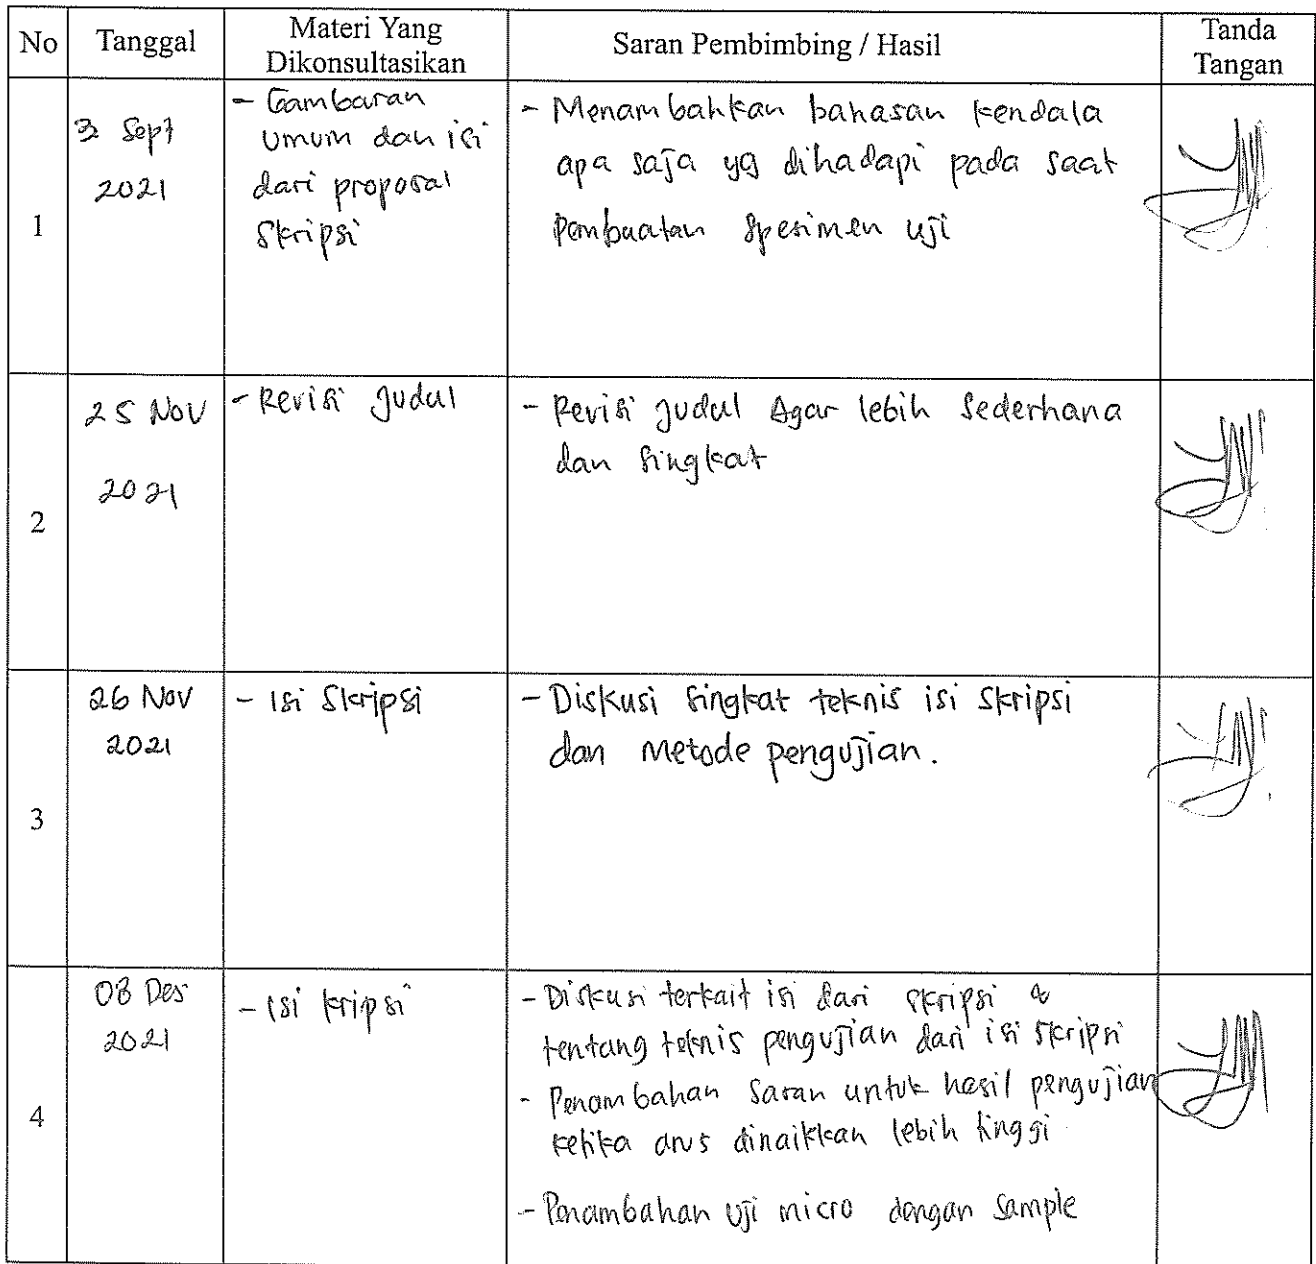 No
Tanggal
Materi Yang
Dikonsultasikan
Saran Pembimbing / Hasil
Tanda
Tangan
1
3 Sept
2021
- Gambaran
umum dan isi
dari proposal
Skripsi
- Menambahkan bahasan kendala
apa saja yg dihadapi pada saat
pembuatan spesimen uji
2
25 Nov
2021
- Revisi Judul
- Revisi Judul Agar lebih Sederhana
dan singkat
3
26 Nov
2021
- Isi Skripsi
- Diskusi singkat teknis isi skripsi
dan metode pengujian.
4
08 Des
2021
- Isi kripsi
- Diskusi terkait isi dari skripsi &
tentang teknis pengujian dari isi skripsi
- Penambahan saran untuk hasil pengujian
ketika arus dinaikkan lebih tinggi
- Penambahan uji micro dengan sample